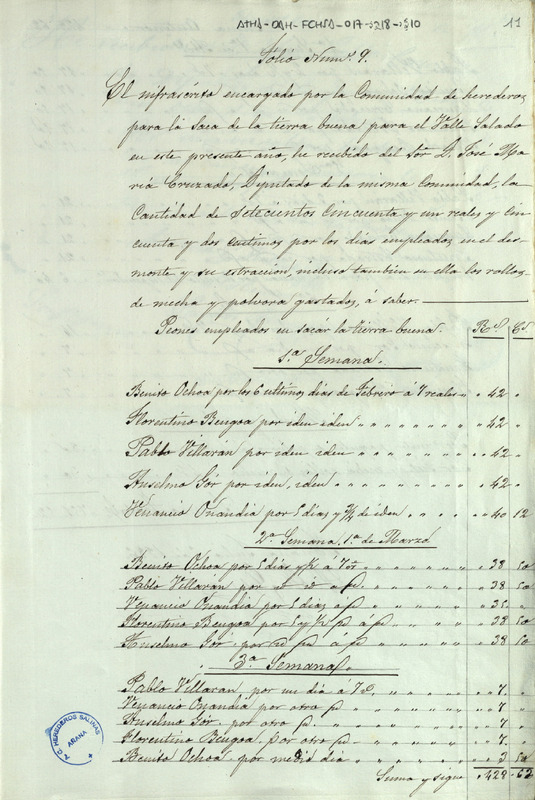 ATHA-DAH-FCHSA-017-218-10
11
Folio Num.º 9.
El infrascrito encargado por la Comunidad de herederos
para la Saca de la tierra buena para el Valle Salado
en este presente año, he recibido del Sor D. José Ma
ria Cruzado, Diputado de la misma Comunidad, la
Cantidad de Setecientos Cincuenta y un reales y Cin
cuenta y dos centimos por los dias empleados en el des
monte y su estraccion, incluso tambien en ella los rollos
de mecha y polvora gastados, á saber.
Peones empleados en sacár la tierra buena. Rs Cs
1.ª Semana.
Benito Ochoa por los 6 ultimos dias de Febrero á 7 reales " 42 "
Florentino Beugoa por iden iden " 42 "
Pablo Villarán por iden iden " 42 "
Anselmo Gór por iden, iden " 42 "
Venancio Onandia por 5 dias y 3/4 de iden " 40 12
2.ª Semana, 1.ª de Marzo
Benito Ochoa por 5 dias y 1/2 á 7 rs " 38 50
Pablo Villarán por " 38 50
Venancio Onandia por 5 dias a " 35 "
Florentino Beugoa por 5 y 1/2 " 38 50
Anselmo Gór por " 38 50
3.ª Semana.
Pablo Villaran por un dia á 7 " 7 "
Venancio Onandia por otro " 7 "
Anselmo Gór por otro " 7 "
Florentino Beugoa por otro " 7 "
Benito Ochoa por medio dia " 3 50
Suma y sigue 429 62
A.C. HEREDEROS SALINAS
AÑANA